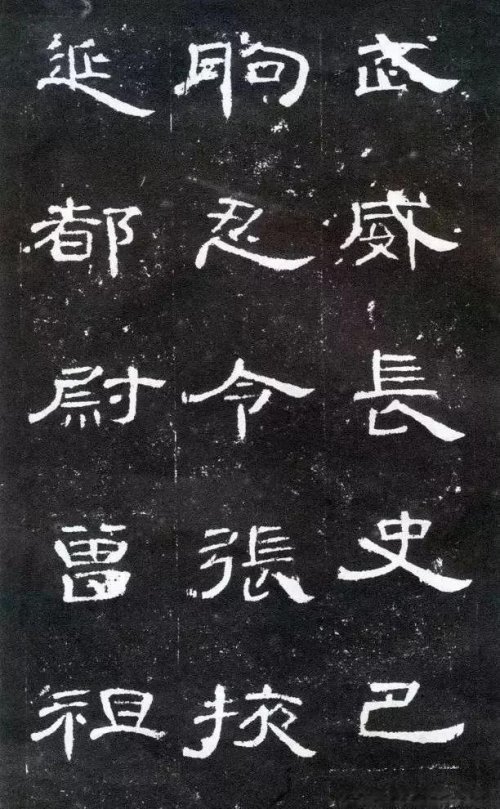 武威長史巴
朐忍令張掖
延都尉曾祖